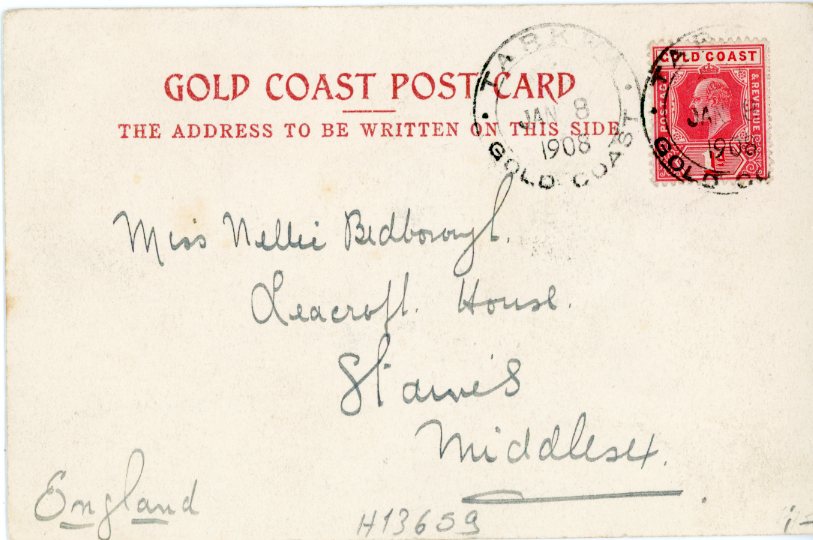 GOLD COAST POST CARD
THE ADDRESS TO BE WRITTEN ON THIS SIDE
TARKWA
JAN 8
1908
GOLD COAST
GOLD COAST
POSTAGE
& REVENUE
JA
1908
GOLD CO
Miss Nellie Bedborough.
Leacroft. House.
Staines
Middlesex.
England
H13659